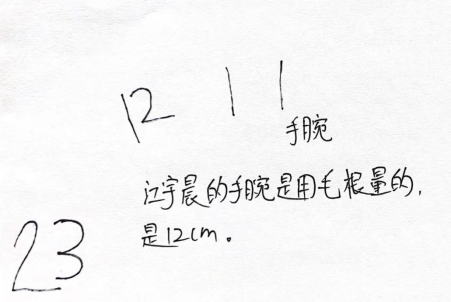 12 11
手腕
江宇晨的手腕是用毛根量的,
是12cm。
23